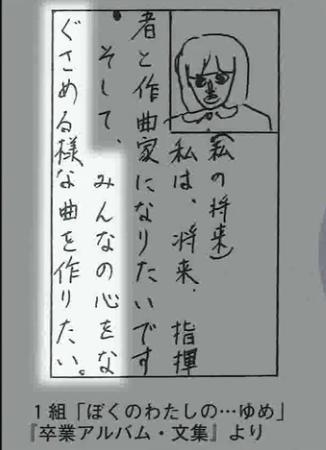 (私の将来)
私は、将来、指揮
者と作曲家になりたいです
・そして、みんなの心をな
ぐさめる様な曲を作りたい。
1組「ぼくのわたしの…ゆめ」
『卒業アルバム・文集』より